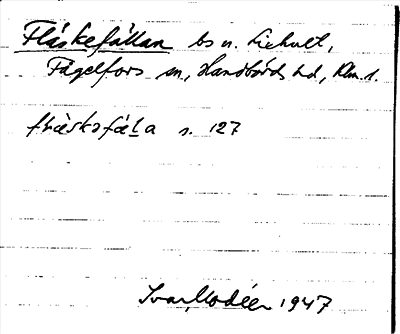 Fläskefällan bs u. Liehult,
Fågelfors sn, Handbörds hd, Klm. l.
flæskəfæla s. 127
Ivar Modéer 1947